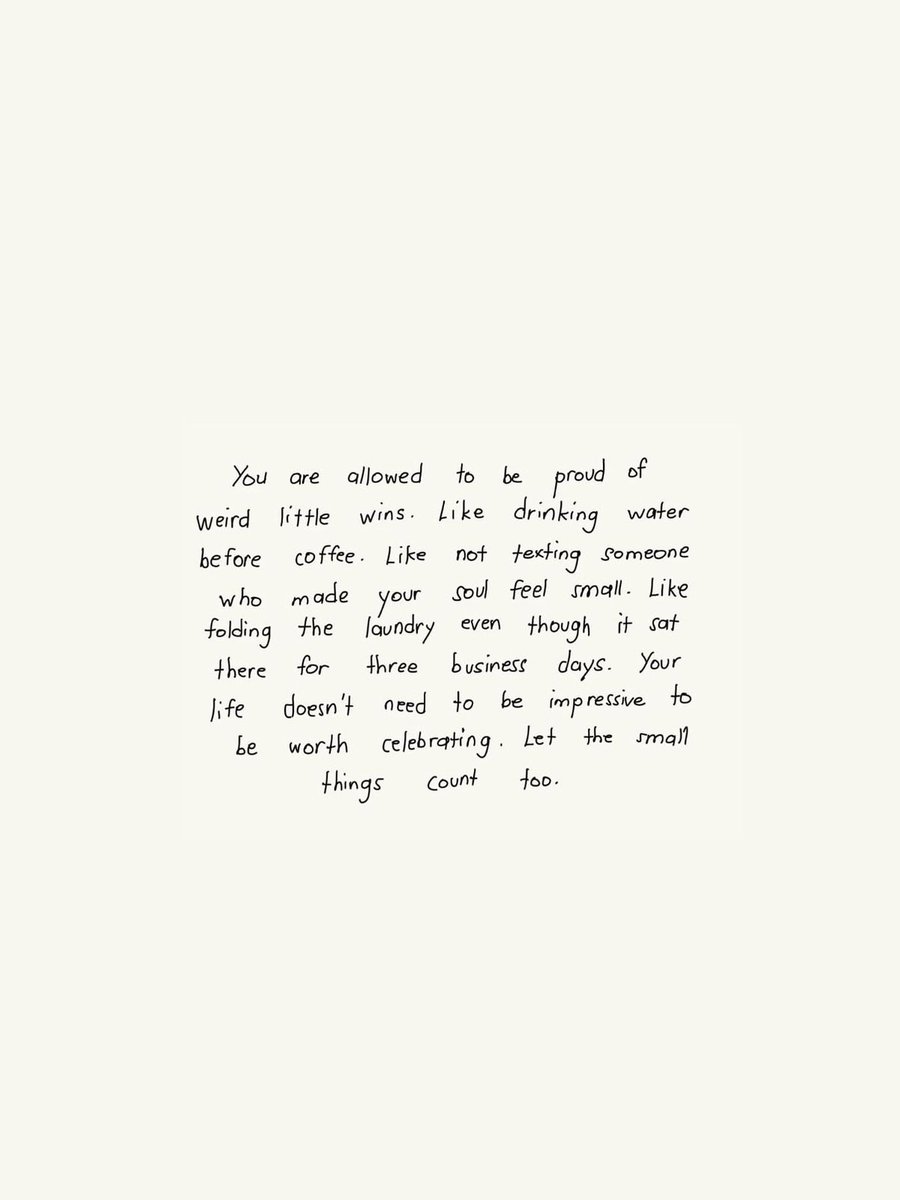 You are allowed to be proud of
weird little wins. Like drinking water
before coffee. Like not texting someone
who made your soul feel small. Like
folding the laundry even though it sat
there for three business days. Your
life doesn't need to be impressive to
be worth celebrating. Let the small
things count too.